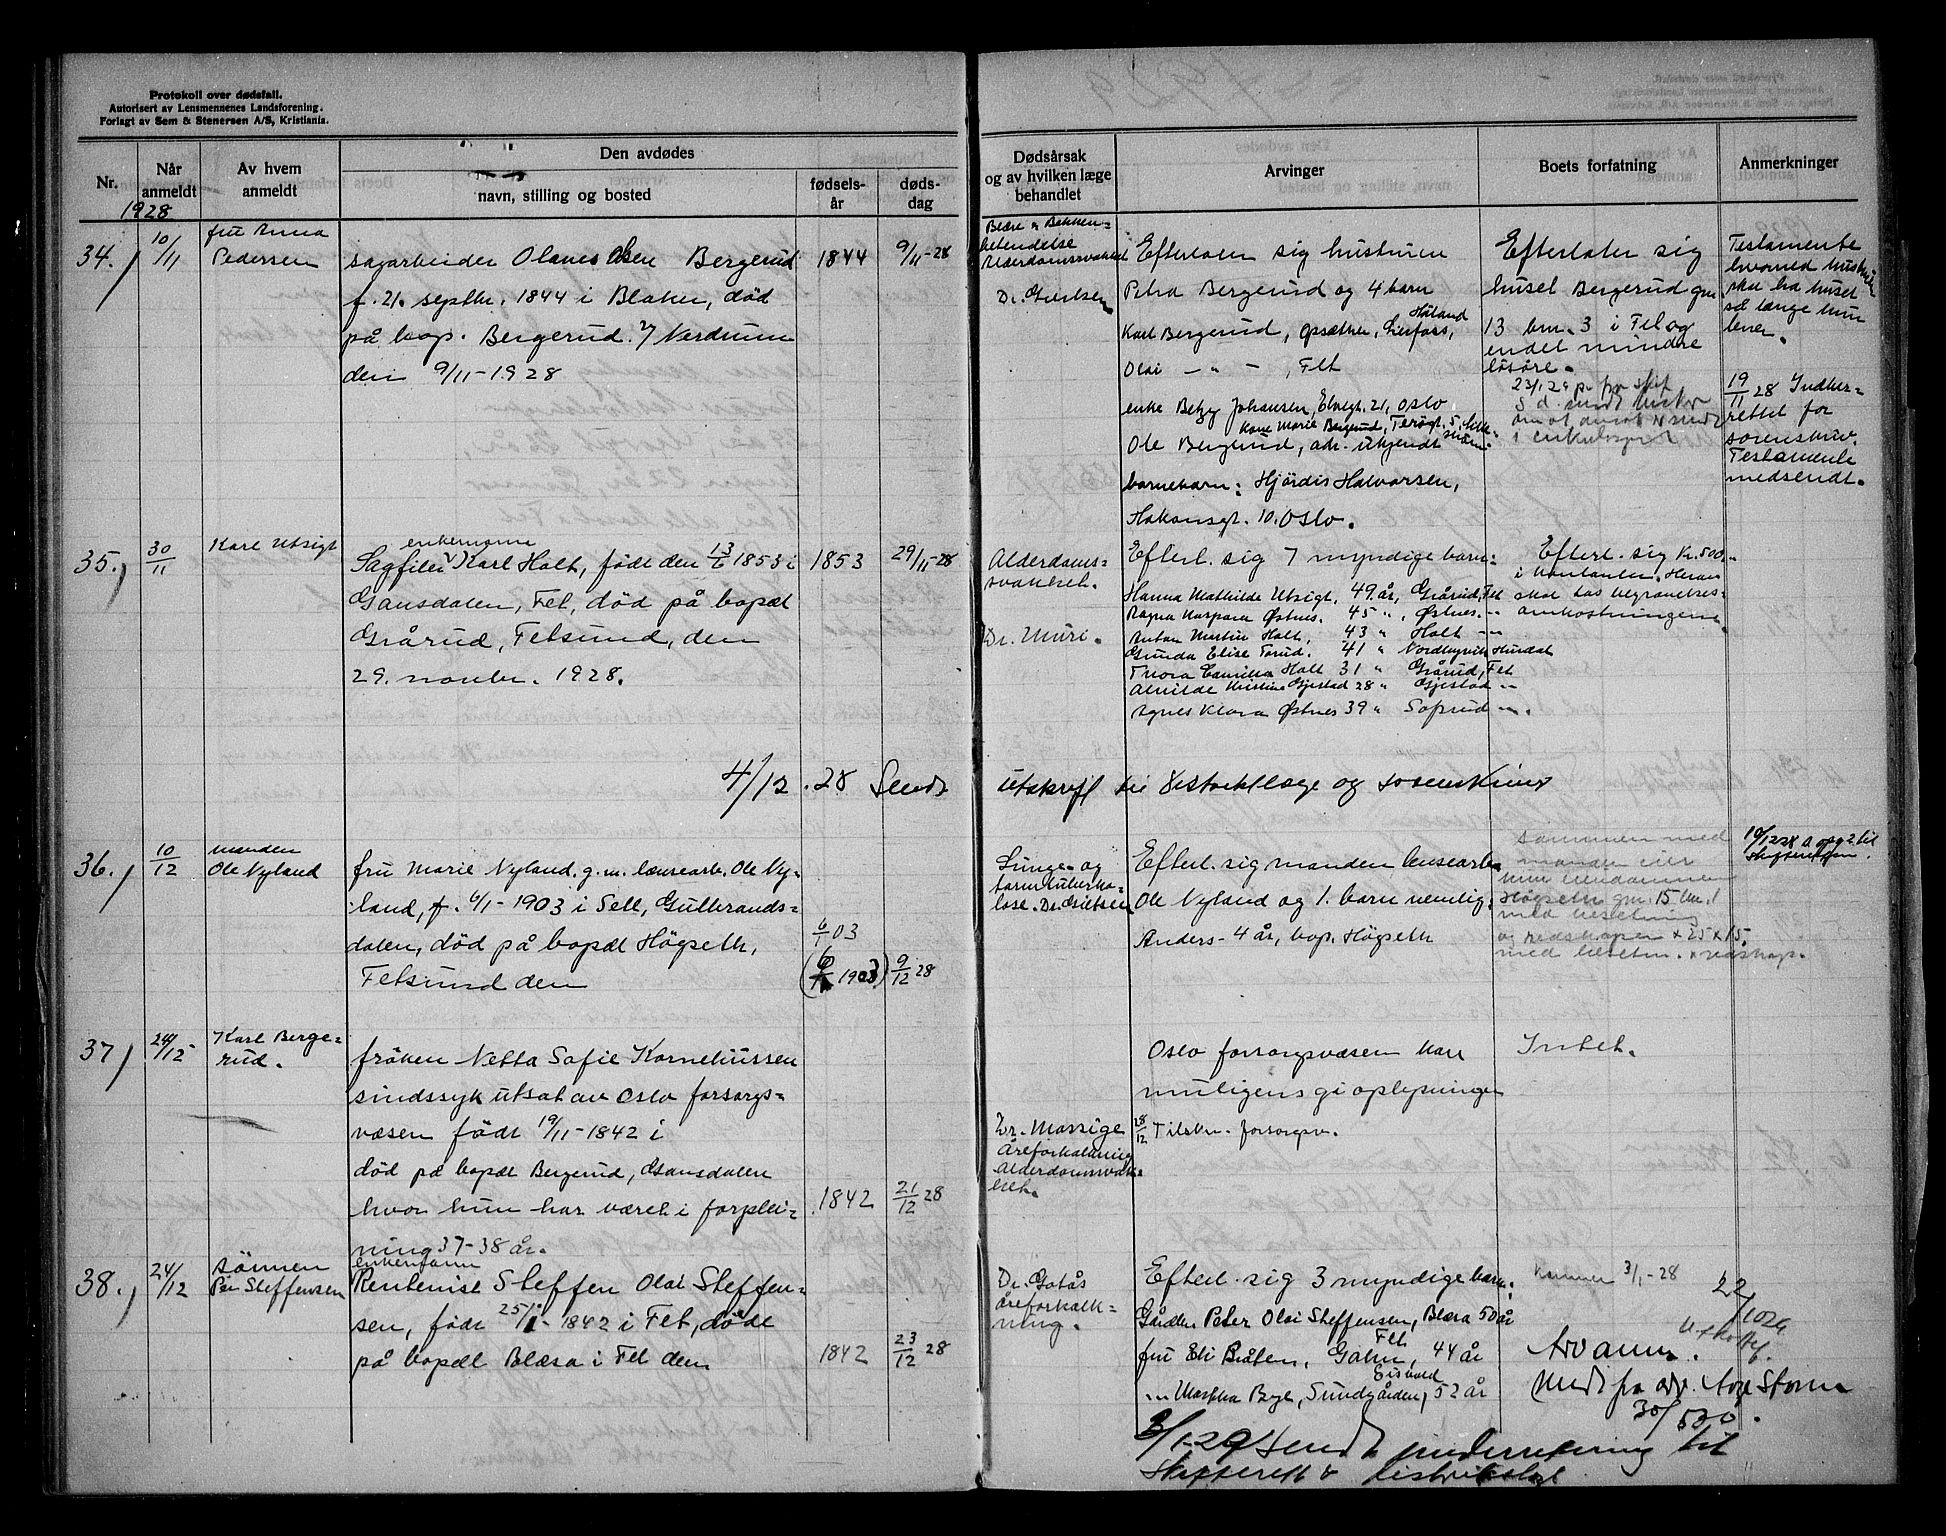 Protokoll over dødsfall.
Autorisert av Lensmennenes Landsforening.
Forlagt av Sem & Stenersen A/S, Kristiania.
Nr.
Når anmeldt
Av hvem anmeldt
Den avdødes
navn, stilling og bosted
fødsels-år
døds-dag
Dødsårsak
og av hvilken læge
behandlet
Arvinger
Boets forfatning
Anmerkninger
1928
34.
10/11
fru Anna
Pedersen
sagarbeider Olaves Olsen Bergerud
f. 21. septbr. 1844 i Blaker, død
på bop. Bergerud u/ Nerdrum
den 9/11-1928
1844
9/11-28
Dr.
Efterlater sig hustruen
Petra Bergerud og 4 barn
Karl Bergerud, opsætter, Lierfoss, Høland
Olai - " - , Fet
enke Betzy Johansen, Elvegt. 21, Oslo
Kare Marie Bergerud,
Ole Bergerud, adr. ukjendt
barnebarn: Hjördis Halvorsen,
Hakonsgt. 10. Oslo.
Efterlater sig
huset Bergerud gm
13 bm. 3 i Fet og
endel mindre
løsøre.
Testamente
hvorved hustruen
skal ha huset
så længe hun
lever.
19/11 28 Indber-
rettet for
sorenskriv.
Testamente
medsendt.
35.
30/11
Karl Utsigt
enkemann
Sagfiler Karl Holt, født den 13/6 1853 i
Gansdalen, Fet, død på bopæl
Grårud, Fetsund, den
29. novbr. 1928.
1853
29/11-28
Alderdoms-
svakhet.
Dr. Muri.
Efterl. sig 7 myndige barn:
Hanna Mathilde Utsigt, 49 år, Grårud, Fet
Ragna Kaspara Østnes. 45 " , Østnes. -"-
Anton Martin Holt, 43 " Holt -"-
Gunda Elise Torud, 41 " Hurdal
Thora Camilla Holt 31 " Grårud, Fet
Alvilde Kristine Gjestad 28 " Gjestad -"-
Agnes Klara Østnes 39 " Sofsrud -"-
Efterl. sig Kr. 500,-
i kontanter. Herav
skal tas begravelses-
omkostningene.
4/12. 28 Sendt utskrift til distriktslæge og sorenskriver
36.
10/12
manden
Ole Nyland
fru Marie Nyland, g.m. lensearb. Ole Ny-
land, f. 6/1-1903 i Sell, Gudbrands-
dalen, død på bopæl Högseth,
Fetsund den
6/1 03
(6/1 1903)
9/12 28
Lunge- og
tarmtuberku-
lose. Dr.
Efterl. sig manden lensearb.
Ole Nyland og 1. barn nemlig:
Anders - 4 år, bop. Högseth
sammen med
manden eier
hun eiendommen
Högseth gm. 15 bn. 1
med besetning
og redskaper
37.
24/12
Karl Berge-
rud.
fröken Netta Sofie Korneliussen
sindssyk utsat av Oslo forsorgs-
væsen født 19/11-1842 i
död på bopæl Bergerud, Gansdalen
hvor hun har været i forplei-
ning 37-38 år.
1842
21/12 28
Dr. Massige
Åreforkalkning
Alderdomssvak-
het.
Oslo forsorgsvæsen kan
muligens gi oplysninger
28/12 Tilskr. forsorgsv.
Intet.
38.
24/12
sønnen
Per Steffensen
enkemann
Rentenist Steffen Olai Steffen-
sen, født 25/1-1842 i Fet, døde
på bopæl Blæsa i Fet den
1842
23/12 28
Dr. Gotås
åreforkalk-
ning.
Efterl. sig 3 myndige barn:
Gårdbr. Peter Olai Steffensen, Blæsa 50 år
Fet
fru Eli Bråten, Gahn, 44 år
Eidsvold
-"- Martha Bye, Sundgården, 52 år
Kommer 3/1-28
Arvanm.
Medt fra adv. Aage Storm
30/5 30.
3/1-29 Sendt underretning til
Skifterett & distriktslæge